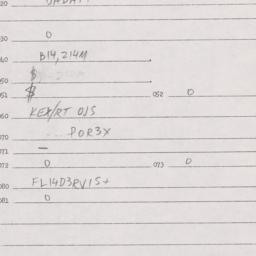 030 0
040 B14,214M
050 $
051 $ 052 0
060 KEX/RT O/S
070 ... POR3X
071 —
072 0 073 0
080 FL14D3RV15+
081 0